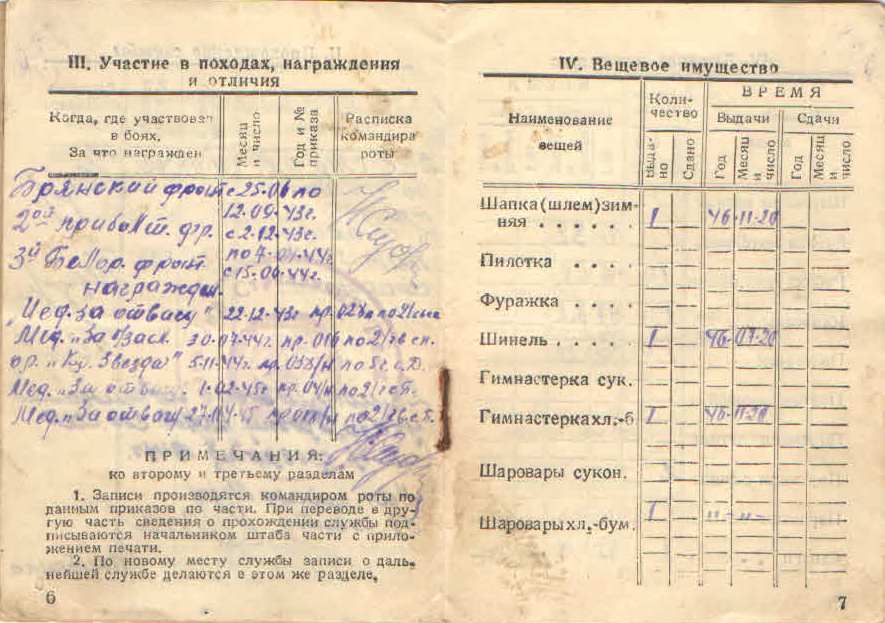 III. Участие в походах, награждения
и отличия
Когда, где участвовал
в боях.
За что награжден
Месяц
и число
Год и №
приказа
Расписка
командира
роты
Брянский фронт с 25.06 по
12.09.43г.
2ой прибалт. фр. с 2.12.43г.
по 7.04.44г.
3й Белор. фронт с 15.06.44г.
награжден.
Мед. "За отвагу" 22.12.43г пр.
Мед. "За 30.07.44г. пр.
ор. "Кр. Звезда" 5.11.44г. пр.
Мед. "За отвагу" 1.02.45г пр.
Мед. "За отвагу" пр.
ПРИМЕЧАНИЯ:
ко второму и третьему разделам
1. Записи производятся командиром роты по
данным приказов по части. При переводе в дру-
гую часть сведения о прохождении службы под-
писываются начальником штаба части с прило-
жением печати.
2. По новому месту службы записи о даль-
нейшей службе делаются в этом же разделе.
6
IV. Вещевое имущество
Наименование
вещей
Коли-
чество
ВРЕМЯ
Выдачи
Сдачи
Выда-
но
Сдано
Год
Месяц
и
число
Год
Месяц
и
число
Шапка (шлем) зим-
няя . . . . . . 1 46 11.20
Пилотка . . . .
Фуражка . . . .
Шинель . . . . . 1 46 07.20
Гимнастерка сук.
Гимнастерка хл.-б 1 46 11.20
Шаровары сукон.
Шаровары хл.-бум. 1 -"- -"-
7